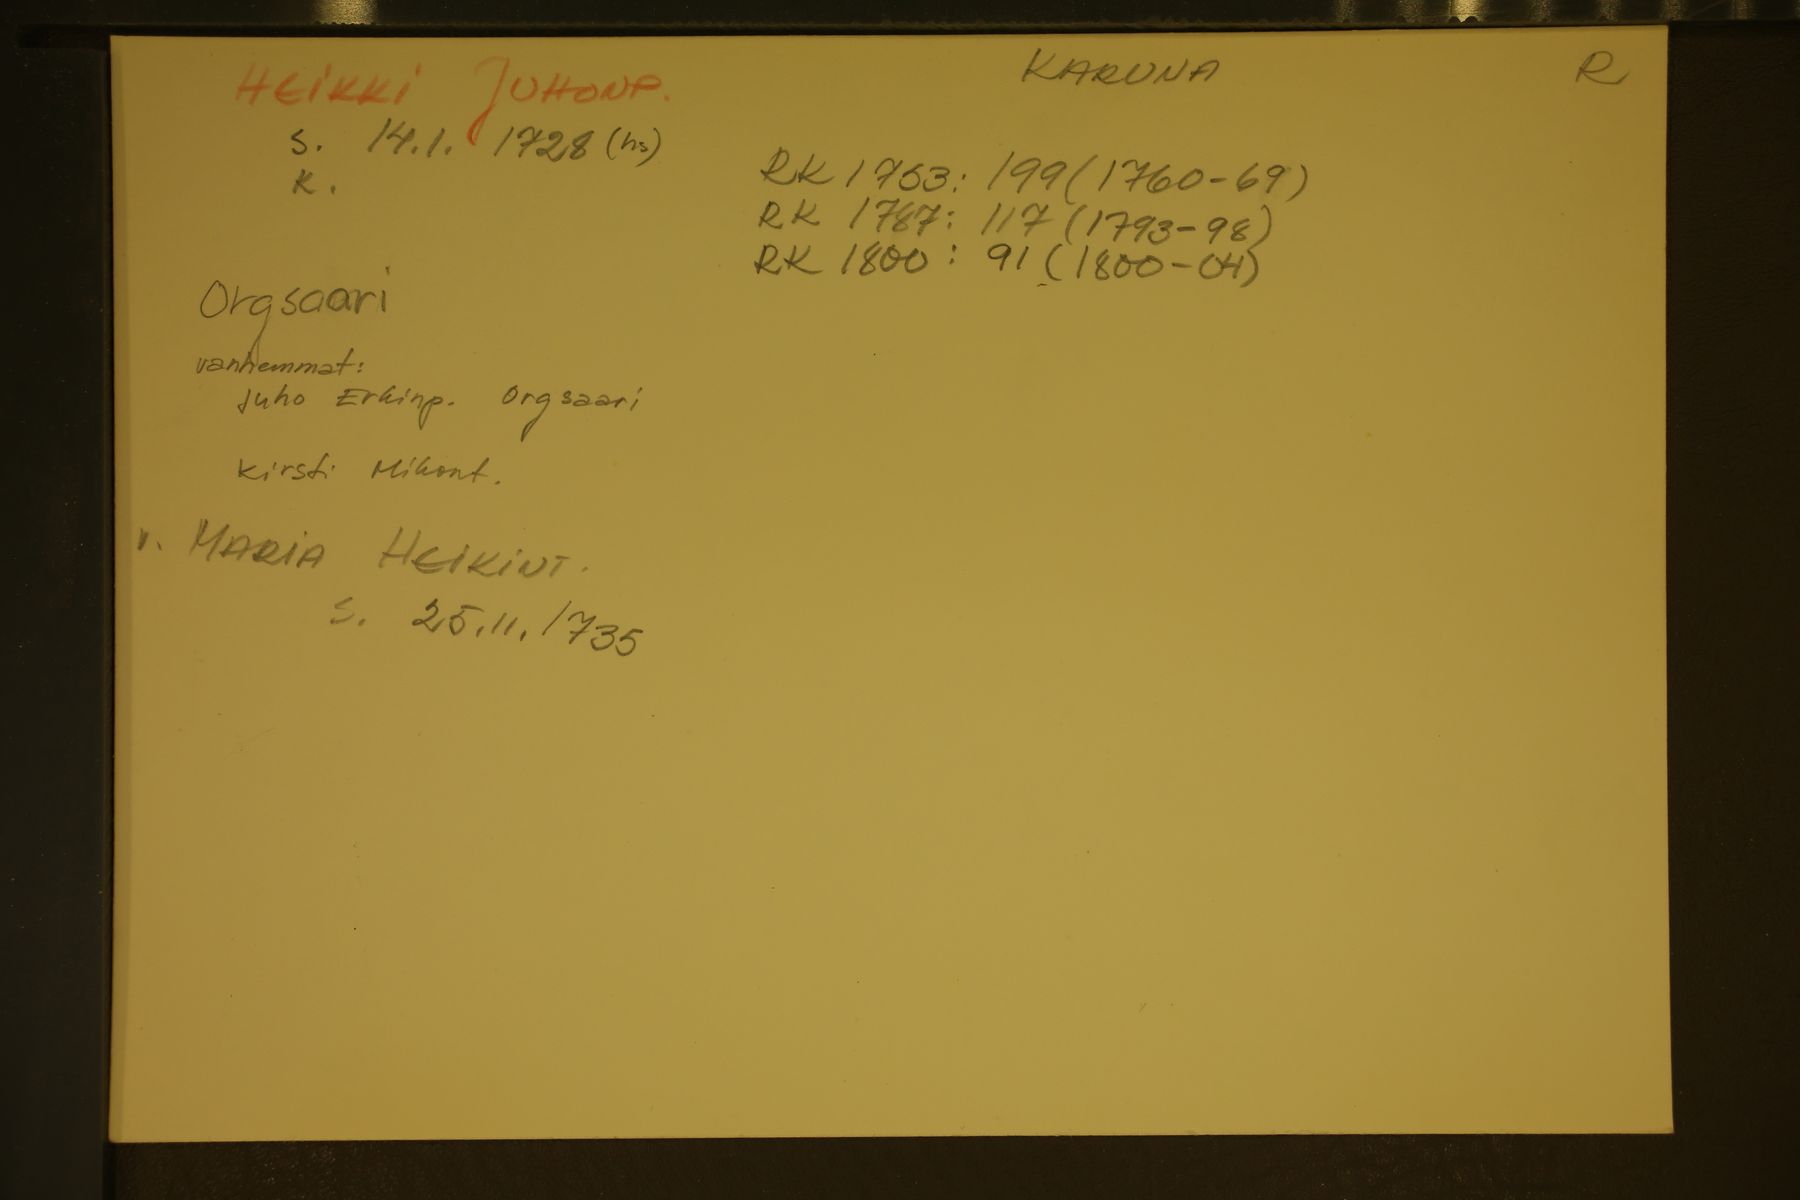 HEIKKI JUHONP.
KARUNA
R
s. 14.1. 1728 (hs)
K.
RK 1753: 199 (1760-69)
RK 1787: 117 (1793-98)
RK 1800: 91 (1800-04)
Orgsaari
vanhemmat:
Juho Erkinp. Orgsaari
Kirsti Mikont.
v. MARIA HEIKINT.
s. 25.11.1735